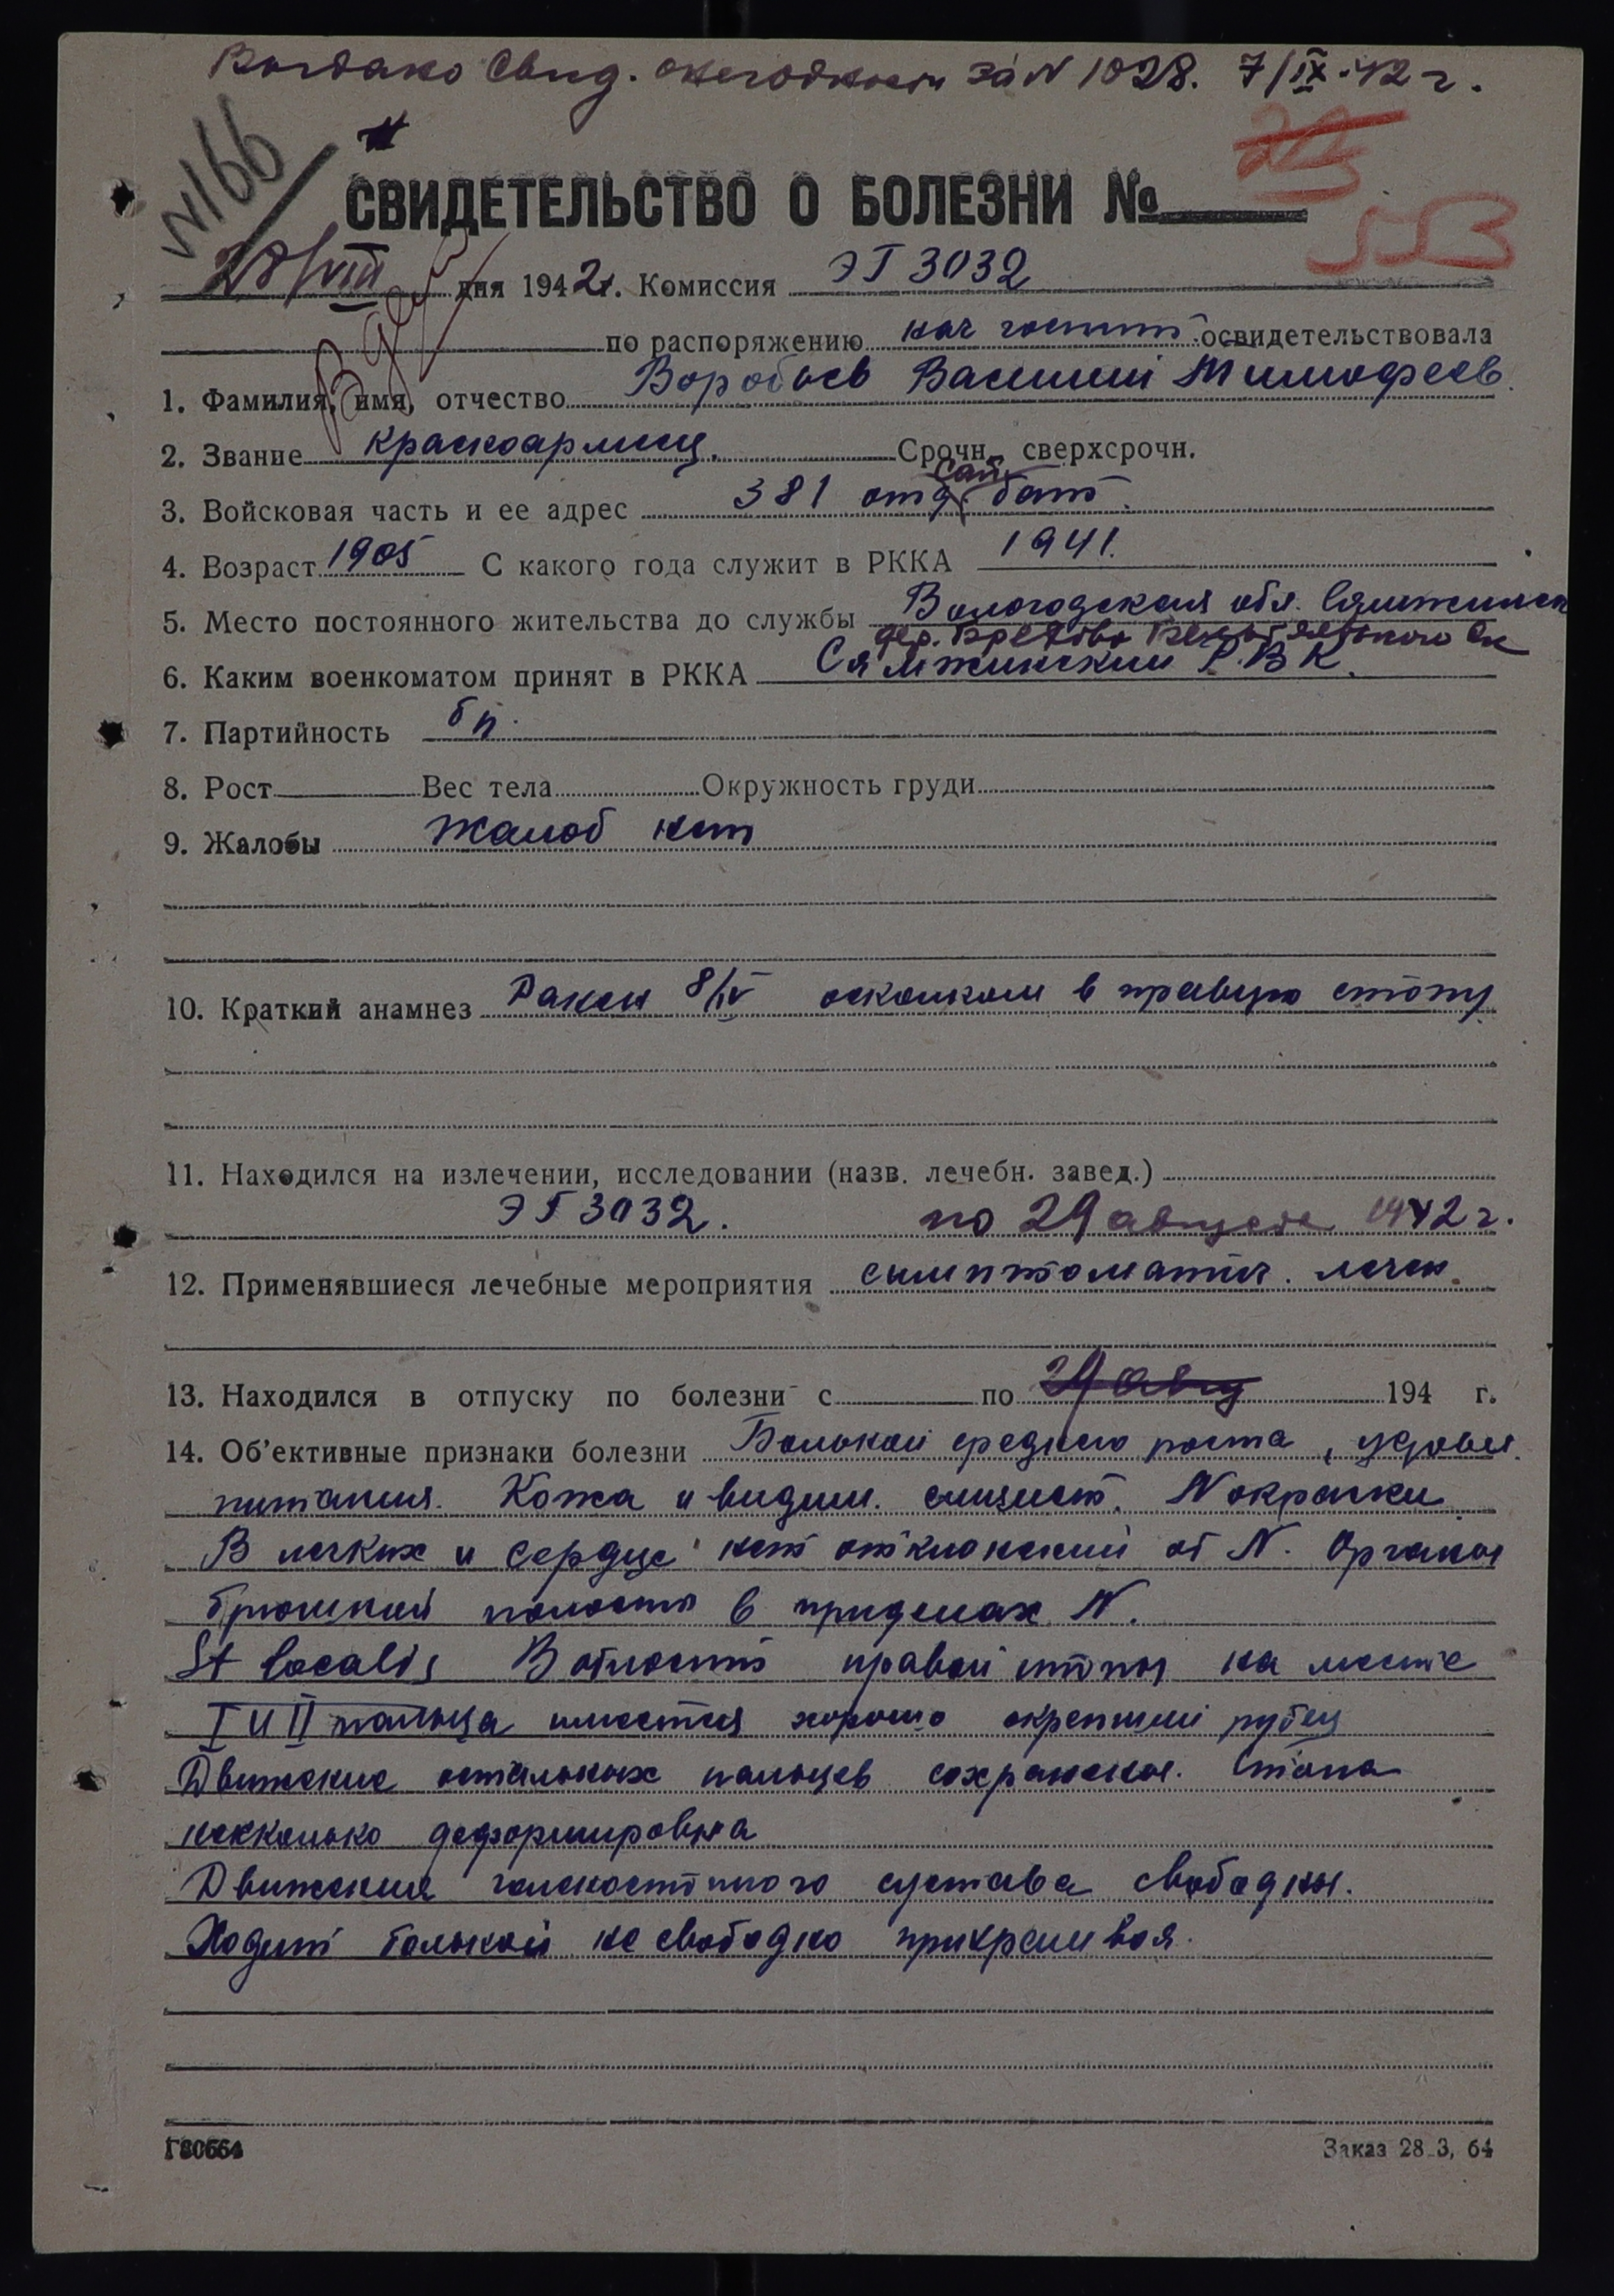 Выдано Свид. о негодности за N 1028. 7/IX-42 г.
N166
СВИДЕТЕЛЬСТВО О БОЛЕЗНИ №
553
28/VIII дня 1942 г. Комиссия ЭГ 3032
по распоряжению нач госпит. освидетельствовала
1. Фамилия, имя, отчество Воробьев Василий Тимофеев.
2. Звание красноармеец. Срочн., сверхсрочн.
3. Войсковая часть и ее адрес 381 отд. сан. бат.
4. Возраст 1905 С какого года служит в РККА 1941.
5. Место постоянного жительства до службы Вологодская обл. Сямженск
дер.
6. Каким военкоматом принят в РККА Сямженским Р.В К.
7. Партийность бп.
8. Рост Вес тела Окружность груди
9. Жалобы Жалоб нет
10. Краткий анамнез Ранен 8/IV осколком в правую стопу
11. Находился на излечении, исследовании (назв. лечебн. завед.)
ЭГ 3032. по 29 августа 1942 г.
12. Применявшиеся лечебные мероприятия симптоматич. лечен.
13. Находился в отпуску по болезни с по 29 авгу 194 г.
14. Об'ективные признаки болезни Больной среднего роста, удовл.
питания. Кожа и видим. слизист. N окраски
В легких и сердце нет отклонений от N. Органы
брюшной полости в пределах N.
St localis В области правой стопы на месте
I и II пальца имеется хорошо окрепший рубец
Движение остальных пальцев сохранены. Стопа
несколько деформирована
Движения голеностопного сустава свободны.
Ходит больной не свободно прихрамывая.
Г80664
Заказ 28 3, 64